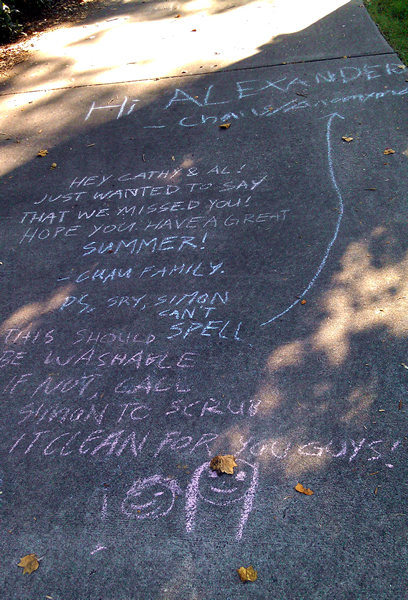 Hi ALEXANDER
HEY CATHY & AL!
JUST WANTED TO SAY
THAT WE MISSED YOU!
HOPE YOU HAVE A GREAT
SUMMER!
- CHAU FAMILY.
PS, SRY, SIMON
CAN'T
SPELL
THIS SHOULD
BE WASHABLE
IF NOT, CALL
SIMON TO SCRUB
IT CLEAN FOR YOU GUYS!